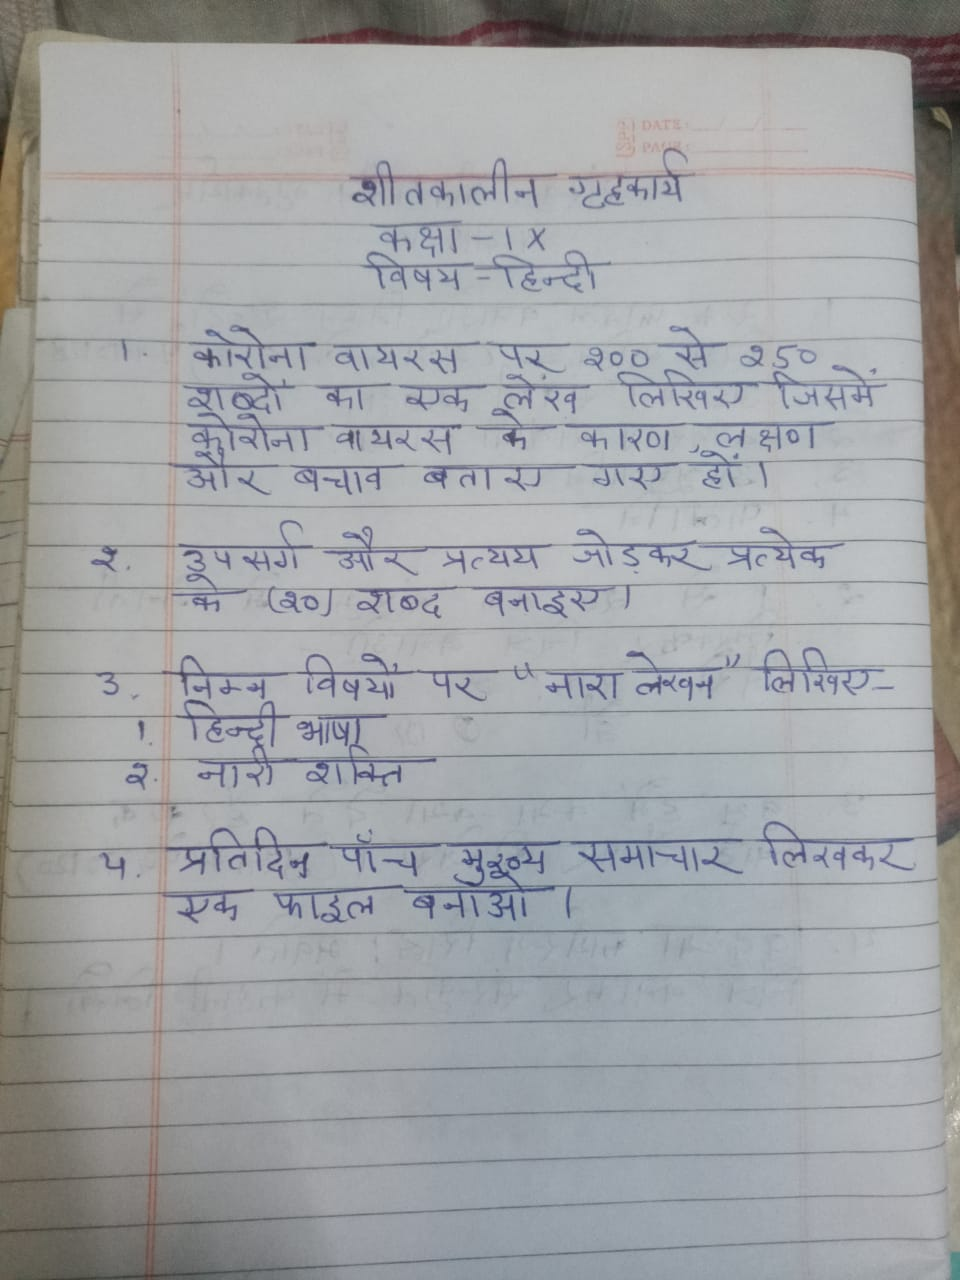 DATE:
PAGE:
शीतकालीन गृहकार्य
कक्षा - IX
विषय - हिन्दी
1. कोरोना वायरस पर २०० से २५०
शब्दों का एक लेख लिखिए जिसमें
कोरोना वायरस के कारण, लक्षण
और बचाव बताए गए हों।
२. उपसर्ग और प्रत्यय जोड़कर प्रत्येक
के (२०) शब्द बनाइए।
3. निम्न विषयों पर "नारा लेखन" लिखिए-
1. हिन्दी भाषा
२. नारी शक्ति
४. प्रतिदिन पाँच मुख्य समाचार लिखकर
एक फाइल बनाओ।